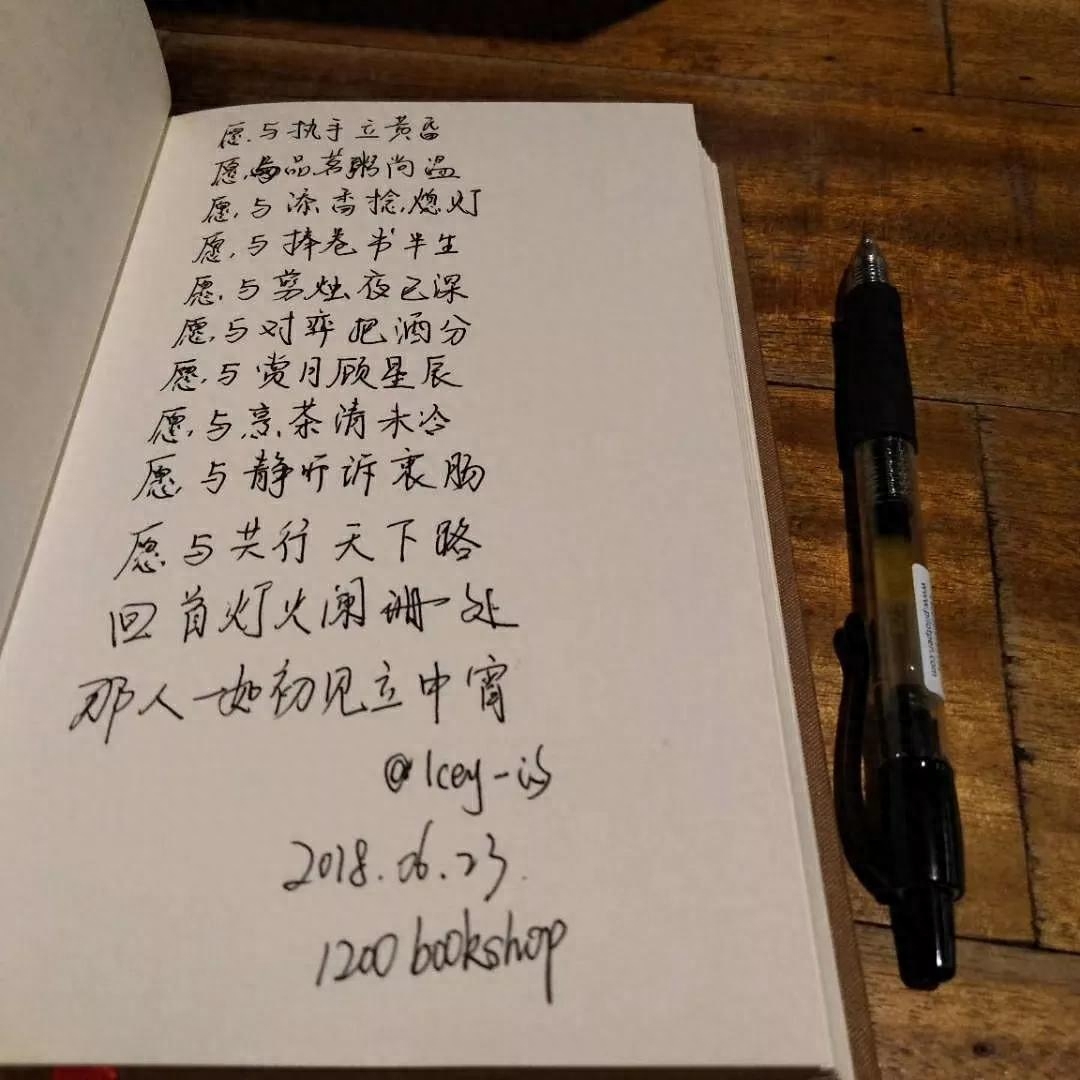 愿与执手立黄昏
愿与品茗粥尚温
愿与添香捻熄灯
愿与捧卷书半生
愿与剪烛夜已深
愿与对弈把酒分
愿与赏月顾星辰
愿与烹茶清未冷
愿与静听诉衷肠
愿与共行天下路
回首灯火阑珊处
那人一如初见立中宵
@Icey-is
2018.06.23.
1200 bookshop
www.pilotpen.com